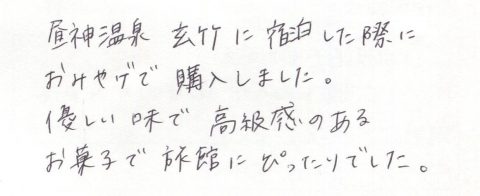 昼神温泉 玄竹に宿泊した際に
おみやげで購入しました。
優しい味で高級感のある
お菓子で旅館にぴったりでした。